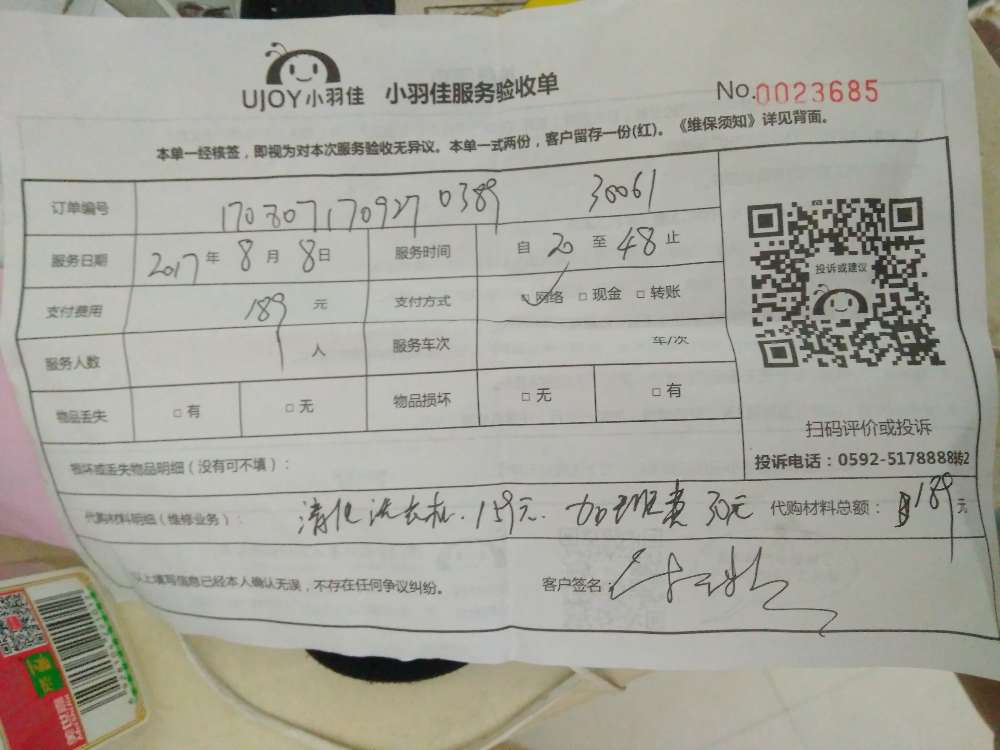 UJOY小羽佳 小羽佳服务验收单 No.0023685
本单一经核签，即视为对本次服务验收无异议。本单一式两份，客户留存一份(红)。《维保须知》详见背面。
订单编号 170807170927 0389 30061
服务日期 2017年8月8日 服务时间 自20至48止
支付费用 189元 支付方式 □网络 □现金 □转账
服务人数 人 服务车次 车/次
物品丢失 □有 □无 物品损坏 □无 □有
投诉或建议
扫码评价或投诉
投诉电话：0592-5178888转2
损坏或丢失物品明细（没有可不填）：
代购材料明细（维修业务）： 清化洗衣机.159元. 加班费30元 代购材料总额：189元
以上填写信息已经本人确认无误，不存在任何争议纠纷。 客户签名：